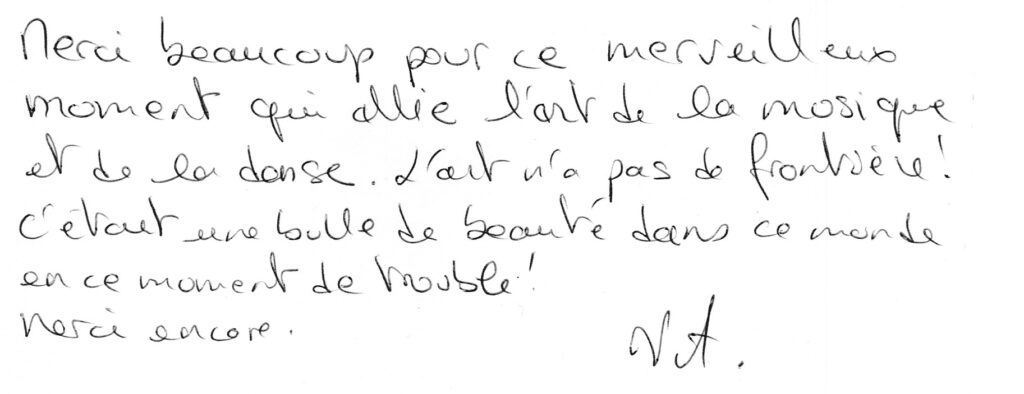 Merci beaucoup pour ce merveilleux
moment qui allie l'art de la musique
et de la danse. L'art n'a pas de frontière !
C'était une bulle de beauté dans ce monde
en ce moment de trouble !
Merci encore.
VA.